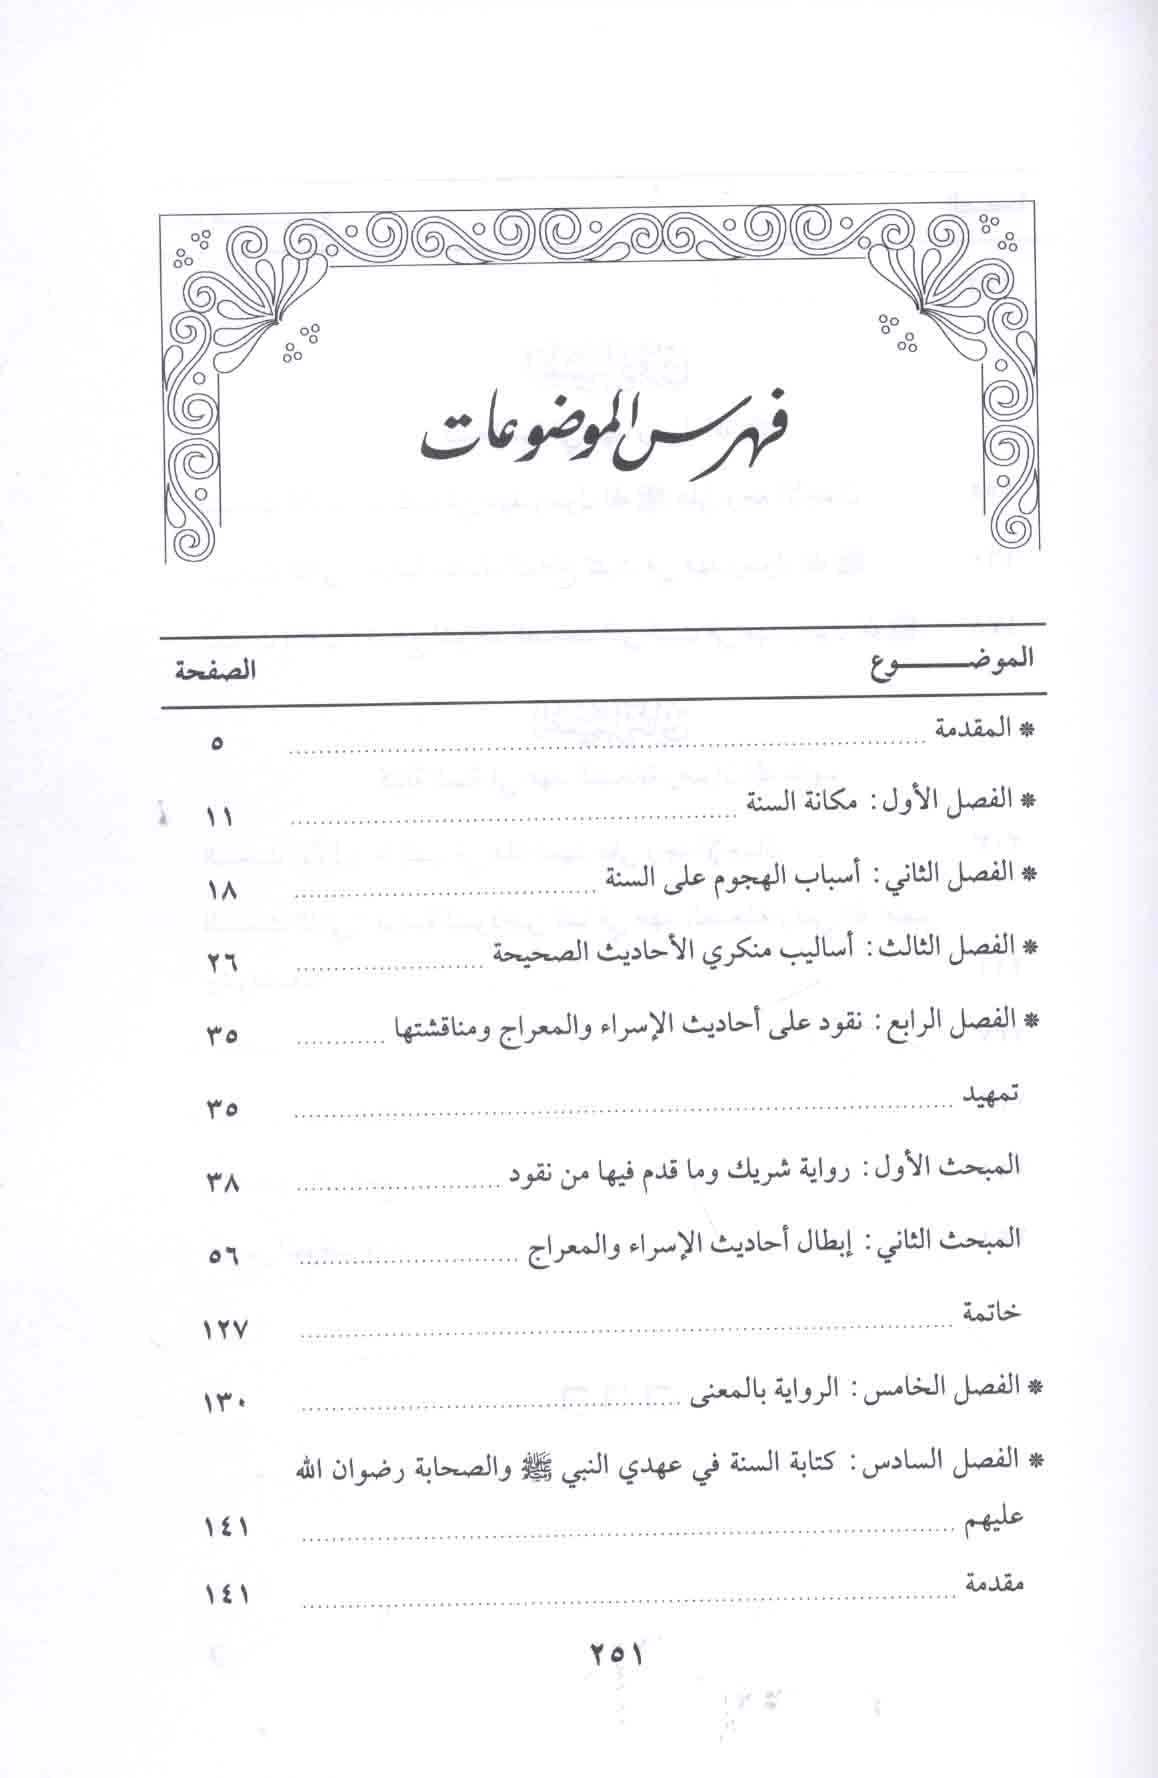 فهرس الموضوعات
الموضـــــــوع الصفحة
* المقدمة ................ ٥
* الفصل الأول: مكانة السنة ................ ١١
* الفصل الثاني: أسباب الهجوم على السنة ................ ١٨
* الفصل الثالث: أساليب منكري الأحاديث الصحيحة ................ ٢٦
* الفصل الرابع: نقود على أحاديث الإسراء والمعراج ومناقشتها ................ ٣٥
تمهيد ................ ٣٥
المبحث الأول: رواية شريك وما قدم فيها من نقود ................ ٣٨
المبحث الثاني: إبطال أحاديث الإسراء والمعراج ................ ٥٦
خاتمة ................ ١٢٧
* الفصل الخامس: الرواية بالمعنى ................ ١٣٠
* الفصل السادس: كتابة السنة في عهدي النبي ﷺ والصحابة رضوان الله
عليهم ................ ١٤١
مقدمة ................ ١٤١
٢٥١